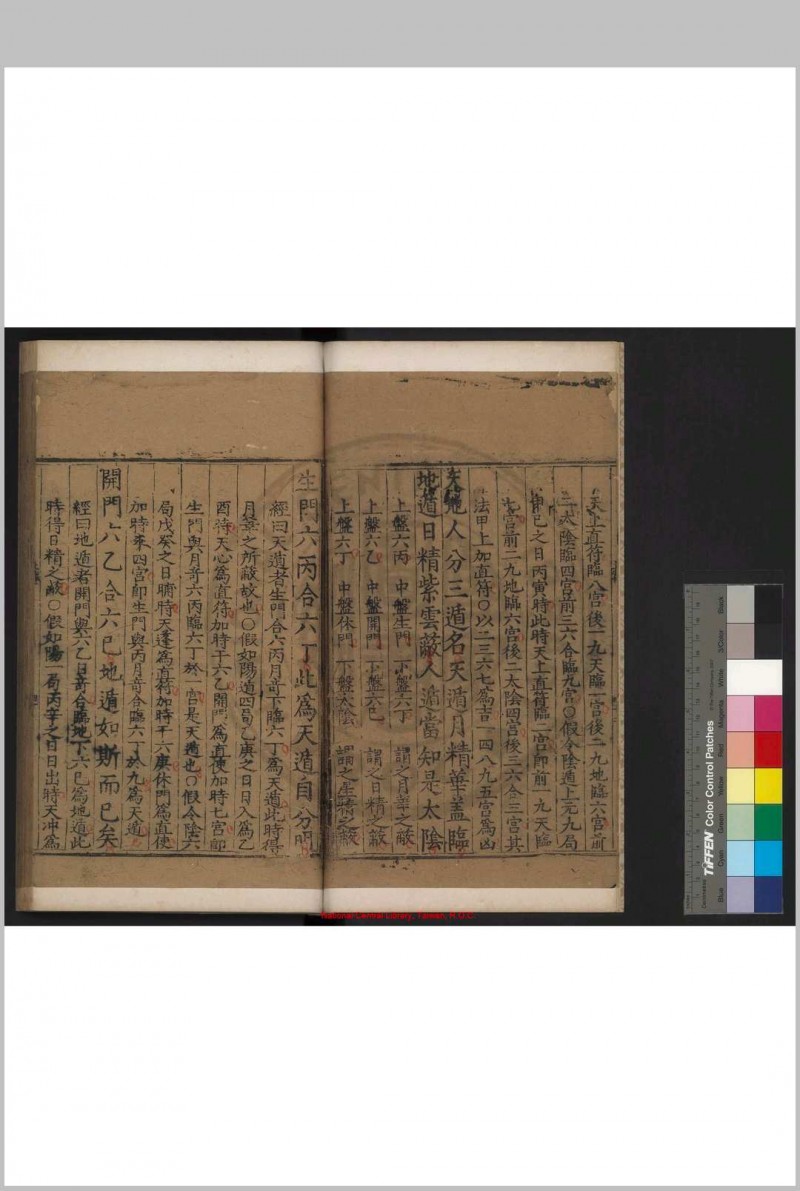 天上直符臨八宮後一九天臨一宮後二九地臨六宮前
二太陰臨四宮前三六合臨九宮〇假令陰遁上元九局
甲巳之日丙寅時此時天上直符臨二宮即前一九天臨
七宮前二九地臨六宮後二太陰四宮後三六合三宮其
法甲上加直符〇以二三六七爲吉一四八九五宮爲凶
天地人分三遁名天遁月精華蓋臨
地遁日精紫雲蔽人遁當知是太陰
上盤六丙 中盤生門 下盤六丁 謂之月華之蔽
上盤六乙 中盤開門 下盤六巳 謂之日精之蔽
上盤六丁 中盤休門 下盤太陰 謂之星精之蔽
生門六丙合六丁此爲天遁自分明
經曰天遁者生門合六丙月竒下臨六丁爲天遁此時得
月華之所蔽故也〇假如陽遁四局乙庚之日日入爲乙
酉時天心爲直符加時干六乙開門爲直使加時七宮即
生門與月竒六丙臨六丁於一宮是天遁也〇假令陰六
局戊癸之日晡時天蓬爲直符加時干六庚休門爲直使
加時來四宮即生門與丙月竒合臨六丁於九爲天遁
開門六乙合六巳地遁如斯而已矣
經曰地遁者開門與六乙日竒合臨地下六巳爲地遁此
時得日精之蔽〇假如陽一局丙辛之日日出時天冲爲
National Central Library, Taiwan, R.O.C
TIFFEN Color Control Patches
Blue
Cyan
Green
Yellow
Red
Magenta
White
3/Color
Black